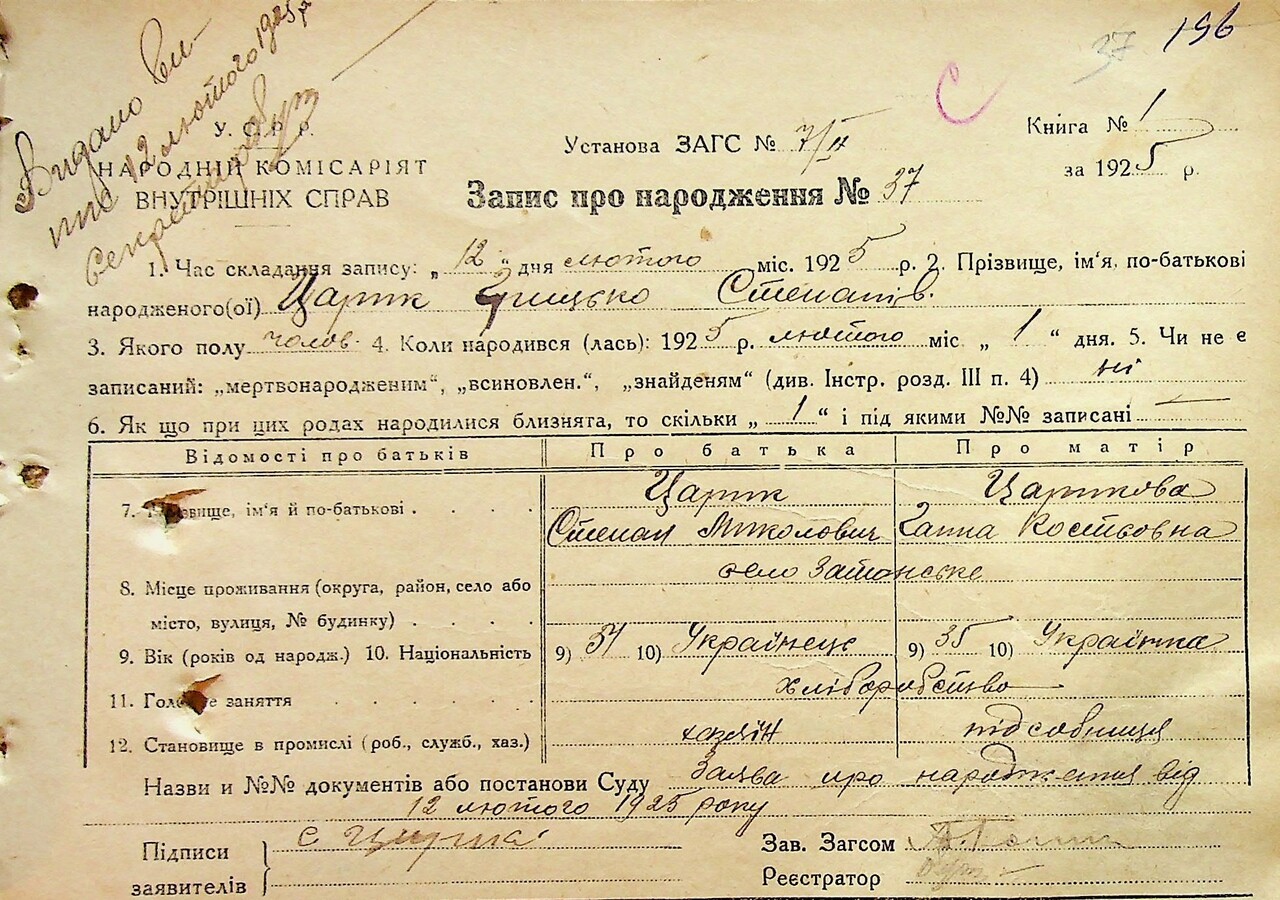 37 196
Видано ви-
пис 12 лютого 1925 р.
У. С. Р. Р.
НАРОДНІЙ КОМІСАРІЯТ
ВНУТРІШНІХ СПРАВ
Установа ЗАГС № 7/II
Книга № 1
за 1925 р.
Запис про народження № 37
1. Час складання запису: „ 12 “ дня лютого міс. 1925 р. 2. Прізвище, ім'я, по-батькові
народженого(ої) Царик Грицько Степанів.
3. Якого полу чолов. 4. Коли народився (лась): 1925 р. лютого міс. „ 1 “ дня. 5. Чи не є
записаний: „мертвонародженим“, „всиновлен.“, „знайденям“ (див. Інстр. розд. III п. 4) ні
6. Як що при цих родах народилися близнята, то скільки „ 1 “ і під якими №№ записані —
Відомості про батьків Про батька Про матір
Царик Царикова
7. Прізвище, ім'я й по-батькові . . . .
Степан Миколович Ганна Костьовна
село Затонське
8. Місце проживання (округа, район, село або
місто, вулиця, № будинку) . . . .
9. Вік (років од народж.) 10. Національність 9) 37 10) Українець 9) 35 10) Українка
хліборобство
11. Головне заняття . . . . . .
12. Становище в промислі (роб., служб., хаз.) хазяїн підсобниця
Назви и №№ документів або постанови Суду Заява про народження від
12 лютого 1925 року
Підписи
заявителів
С Царик
Зав. Загсом
Реєстратор